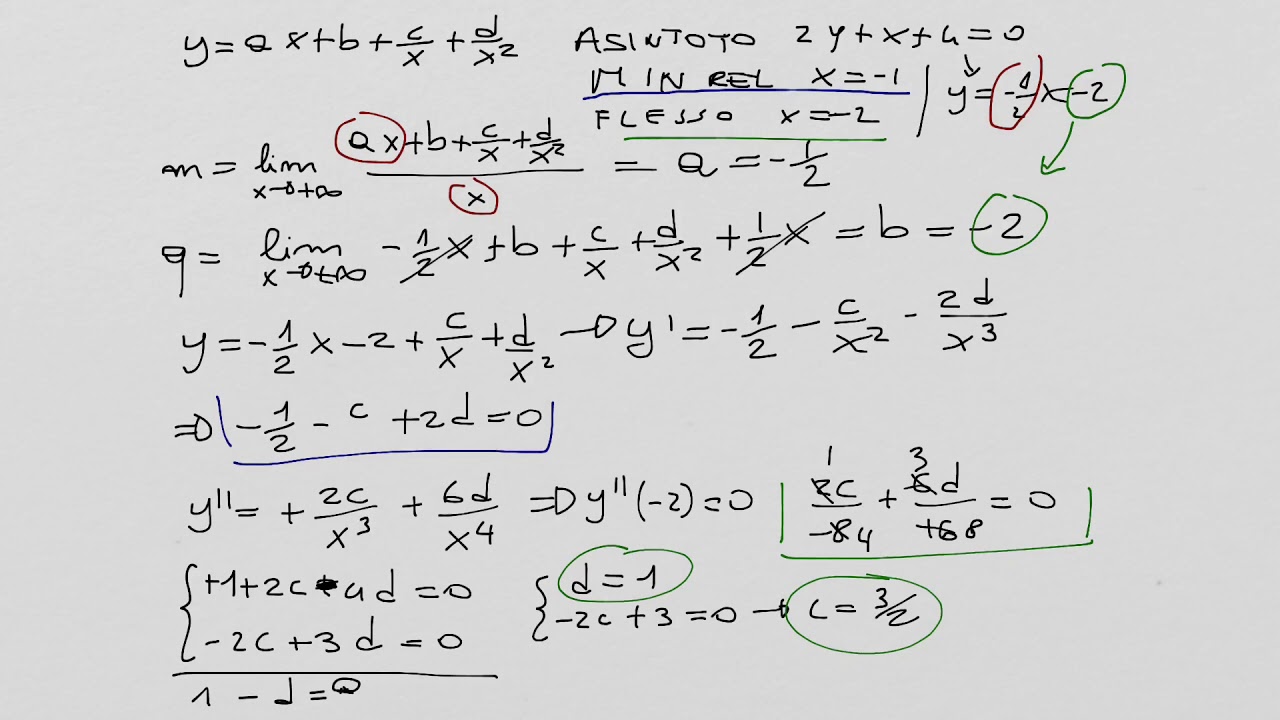 y = ax + b + c/x + d/x² ASINTOTO 2y + x + 4 = 0
MIN REL x = -1 | y = -1/2 x - 2
FLESSO x = -2
m = lim x→+∞ (ax + b + c/x + d/x²)/x = a = -1/2
q = lim x→+∞ -1/2 x + b + c/x + d/x² + 1/2 x = b = -2
y = -1/2 x - 2 + c/x + d/x² → y' = -1/2 - c/x² - 2d/x³
⇒ | -1/2 - c + 2d = 0 |
y'' = + 2c/x³ + 6d/x⁴ ⇒ y''(-2) = 0 | 2c/-8 + 6d/+16 = 0 | 1 4 3 8
{ +1 + 2c - 4d = 0 { d = 1
-2c + 3d = 0 -2c + 3 = 0 → c = 3/2
1 - d = 0